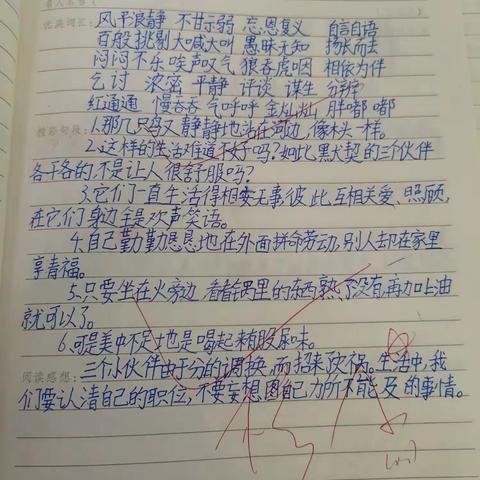 优美词汇： 风平浪静 不甘示弱 忘恩复义 自言自语
百般挑剔 大喊大叫 愚昧无知 扬长而去
闷闷不乐 唉声叹气 狼吞虎咽 相依为伴
乞讨 浓密 平静 评谈 谋生 分辨
红通通 慢吞吞 气呼呼 金灿灿 胖嘟嘟
精彩句段： 1.那几只鸟又静静地站在河边，像木头一样。
2.这样的生活难道不好吗？如此黑大契的三个伙伴
各干各的，不是让人很舒服吗？
3.它们一直生活得相安无事，彼此互相关爱、照顾，
在它们身边全是欢声笑语。
4.自己勤勤恳恳地在外面拼命劳动，别人却在家里
享青福。
5.只要坐在火旁边，看着锅里的东西熟了没有再加上油
就可以了。
6.可是美中不足地是喝起来有股尿味。
阅读感想： 三个小伙伴由于分的调换，而招来致祸。生活中，我
们要认清自己的职位，不要妄想图自己力所不能及的事情。